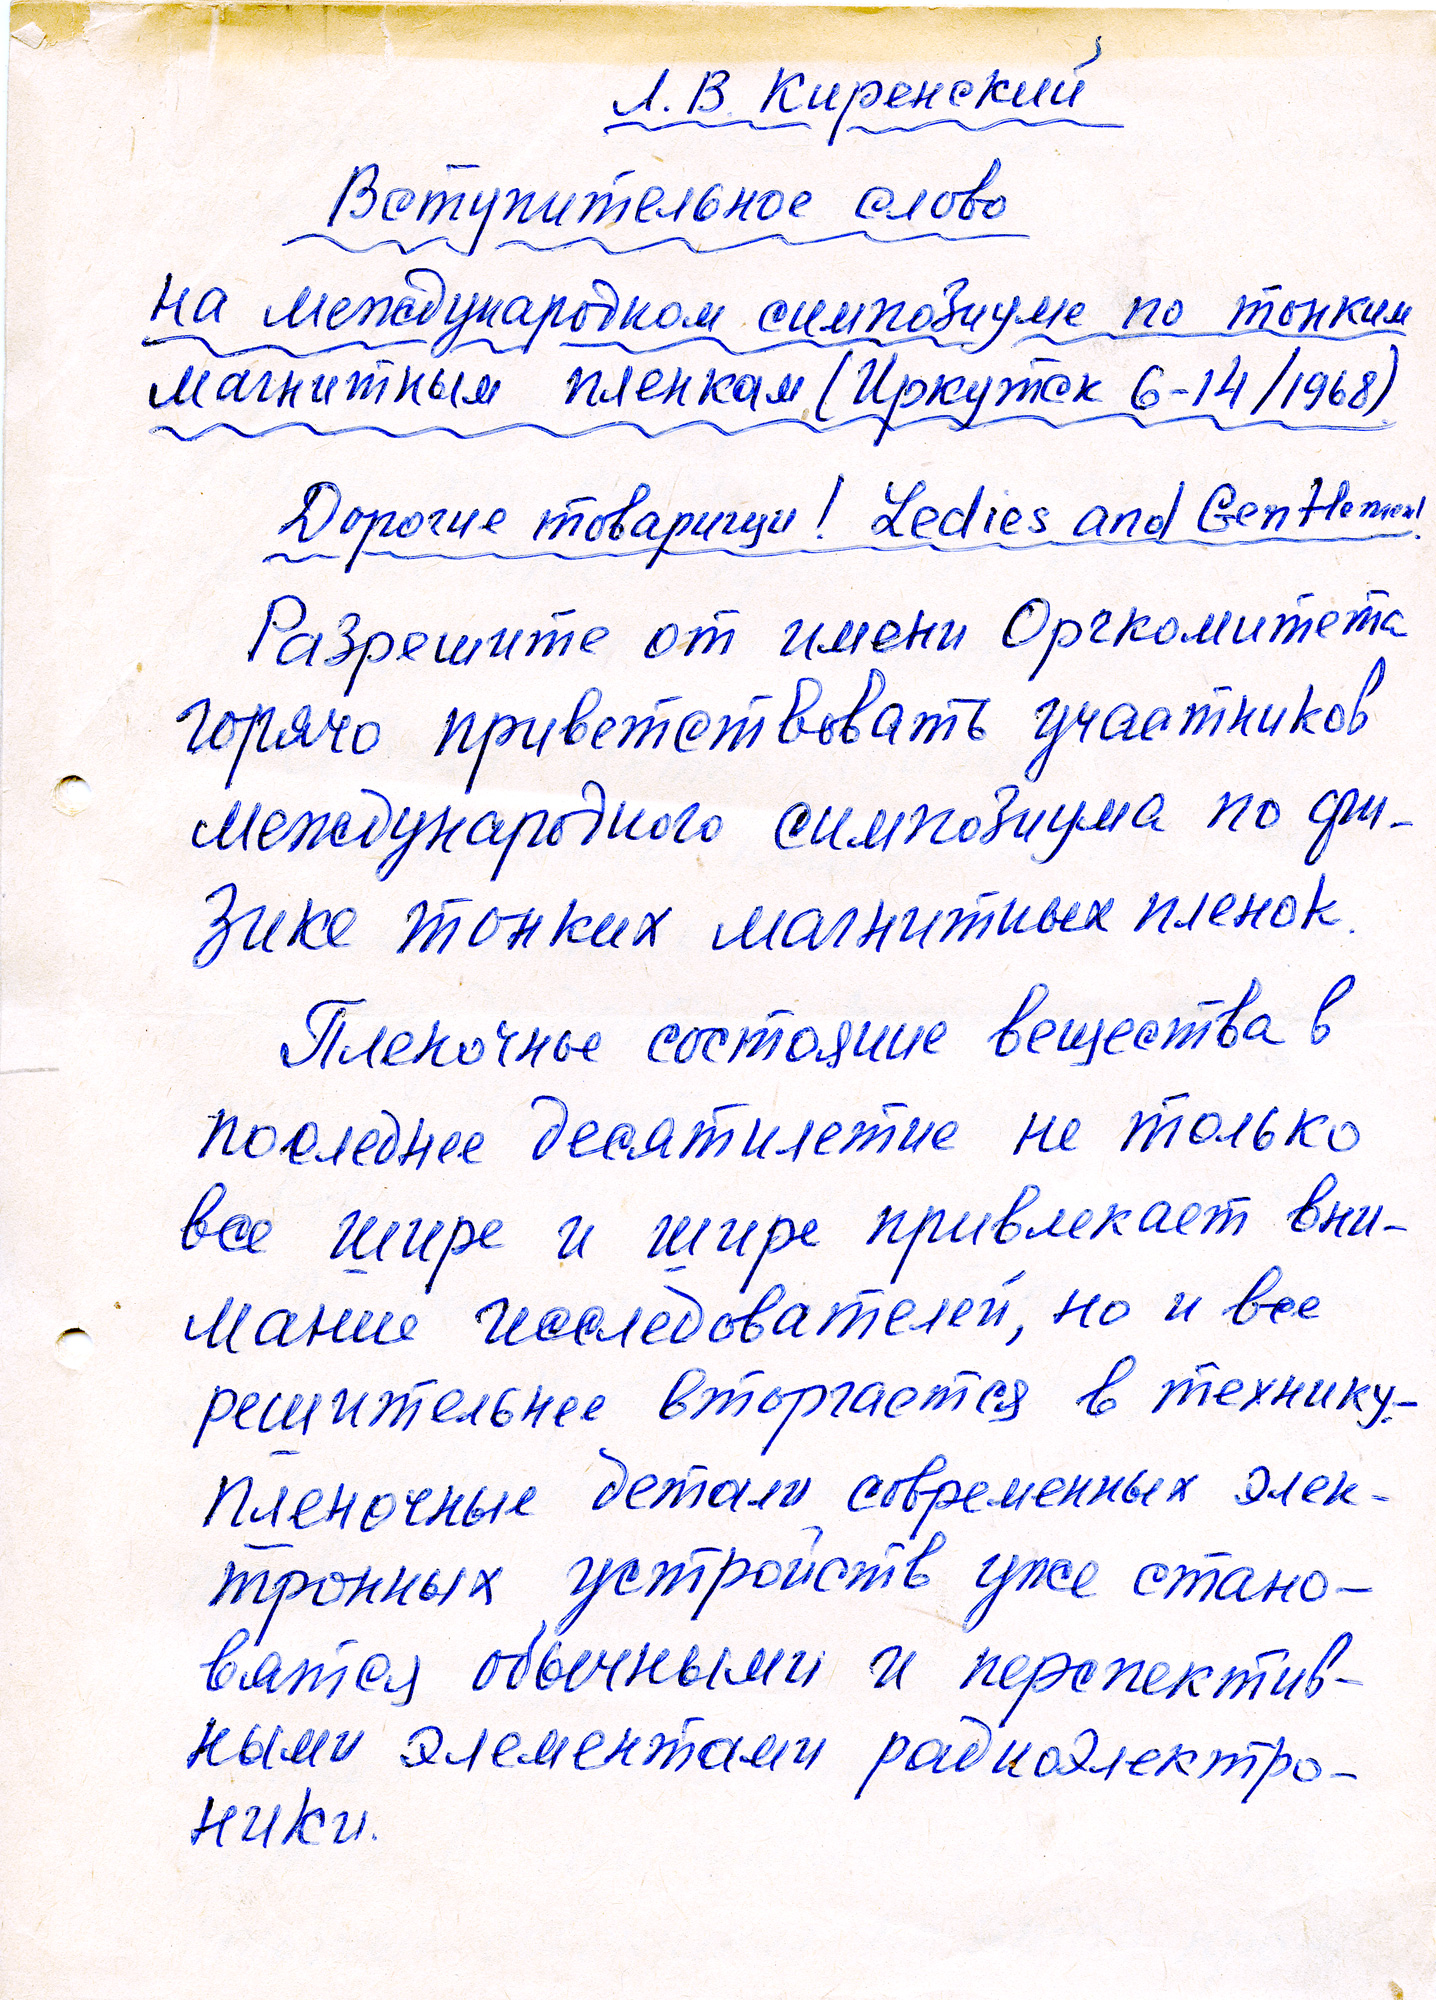 Л. В. Киренский
Вступительное слово
на международном симпозиуме по тонким
магнитным пленкам (Иркутск 6-14/1968)
Дорогие товарищи! Ledies and Gentlemen!
Разрешите от имени Оргкомитета
горячо приветствовать участников
международного симпозиума по фи-
зике тонких магнитных пленок.
Пленочное состояние вещества в
последнее десятилетие не только
все шире и шире привлекает вни-
мание исследователей, но и все
решительнее вторгается в технику.-
Пленочные детали современных элек-
тронных устройств уже стано-
вятся обычными и перспектив-
ными элементами радиоэлектро-
ники.